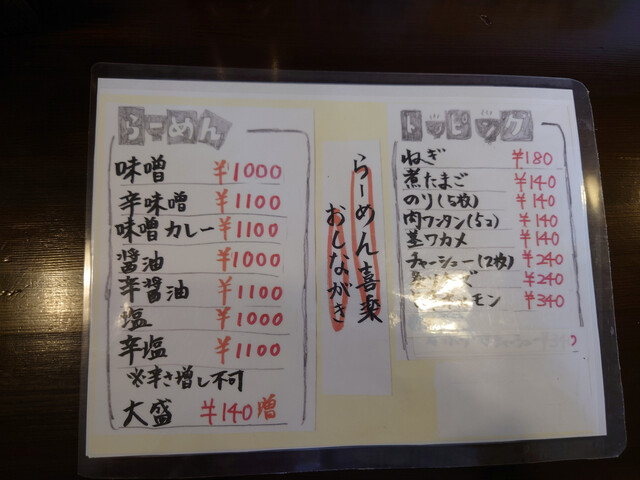 らーめん
味噌 ¥1000
辛味噌 ¥1100
味噌カレー ¥1100
醤油 ¥1000
辛醤油 ¥1100
塩 ¥1000
辛塩 ¥1100
※辛さ増し不可
大盛 ¥140増
らーめん喜楽
おしながき
トッピング
ねぎ ¥180
煮たまご ¥140
のり(5枚) ¥140
肉ワンタン(5コ) ¥140
茎ワカメ ¥140
チャーシュー(2枚) ¥240
ズ ¥240
モン ¥340